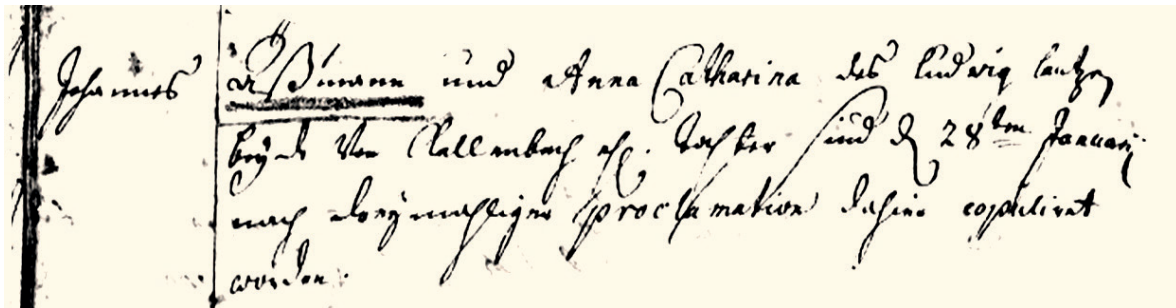 Johannes Aßmann und Anna Catharina des Ludwig Lantzen
beyde von Kallenbach ehl. Tochter sind d 28ten Januarij
nach dreymahliger proclamation dahier copulirt
worden.